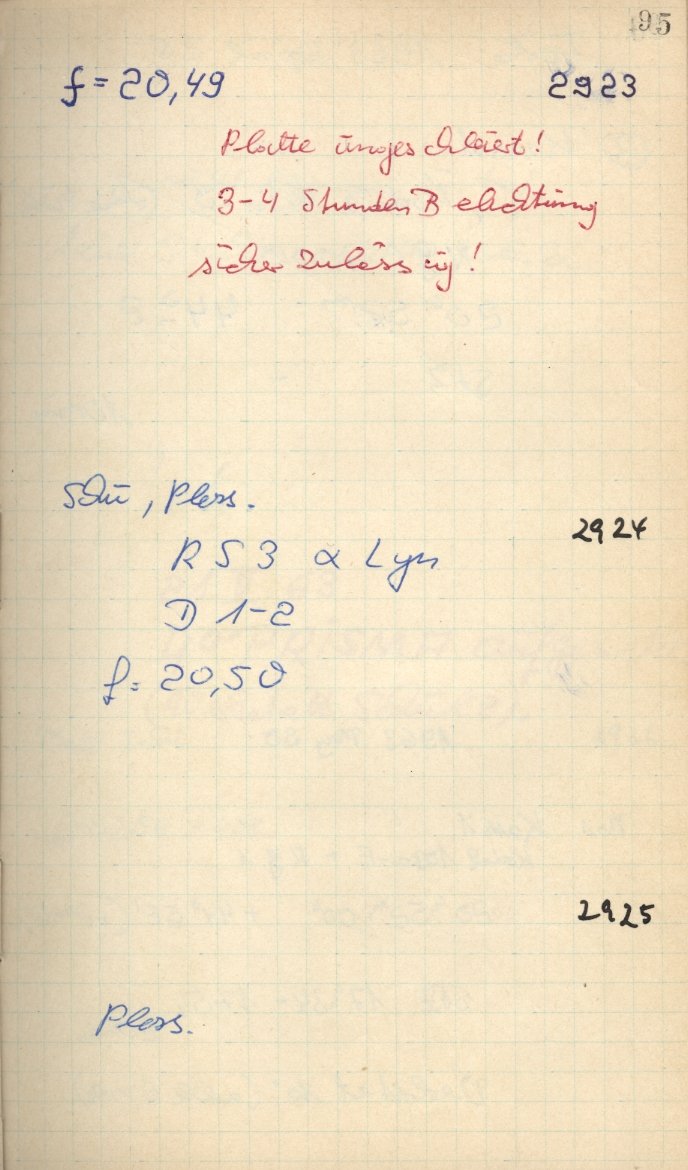 95
f = 20,49 2923
Platte ungeschleiert!
3-4 Stunden Belichtung
sicher zulässig!
Schü, Ploss.
2924
R S 3 α Lyn
D 1-2
f = 20,50
2925
Ploss.